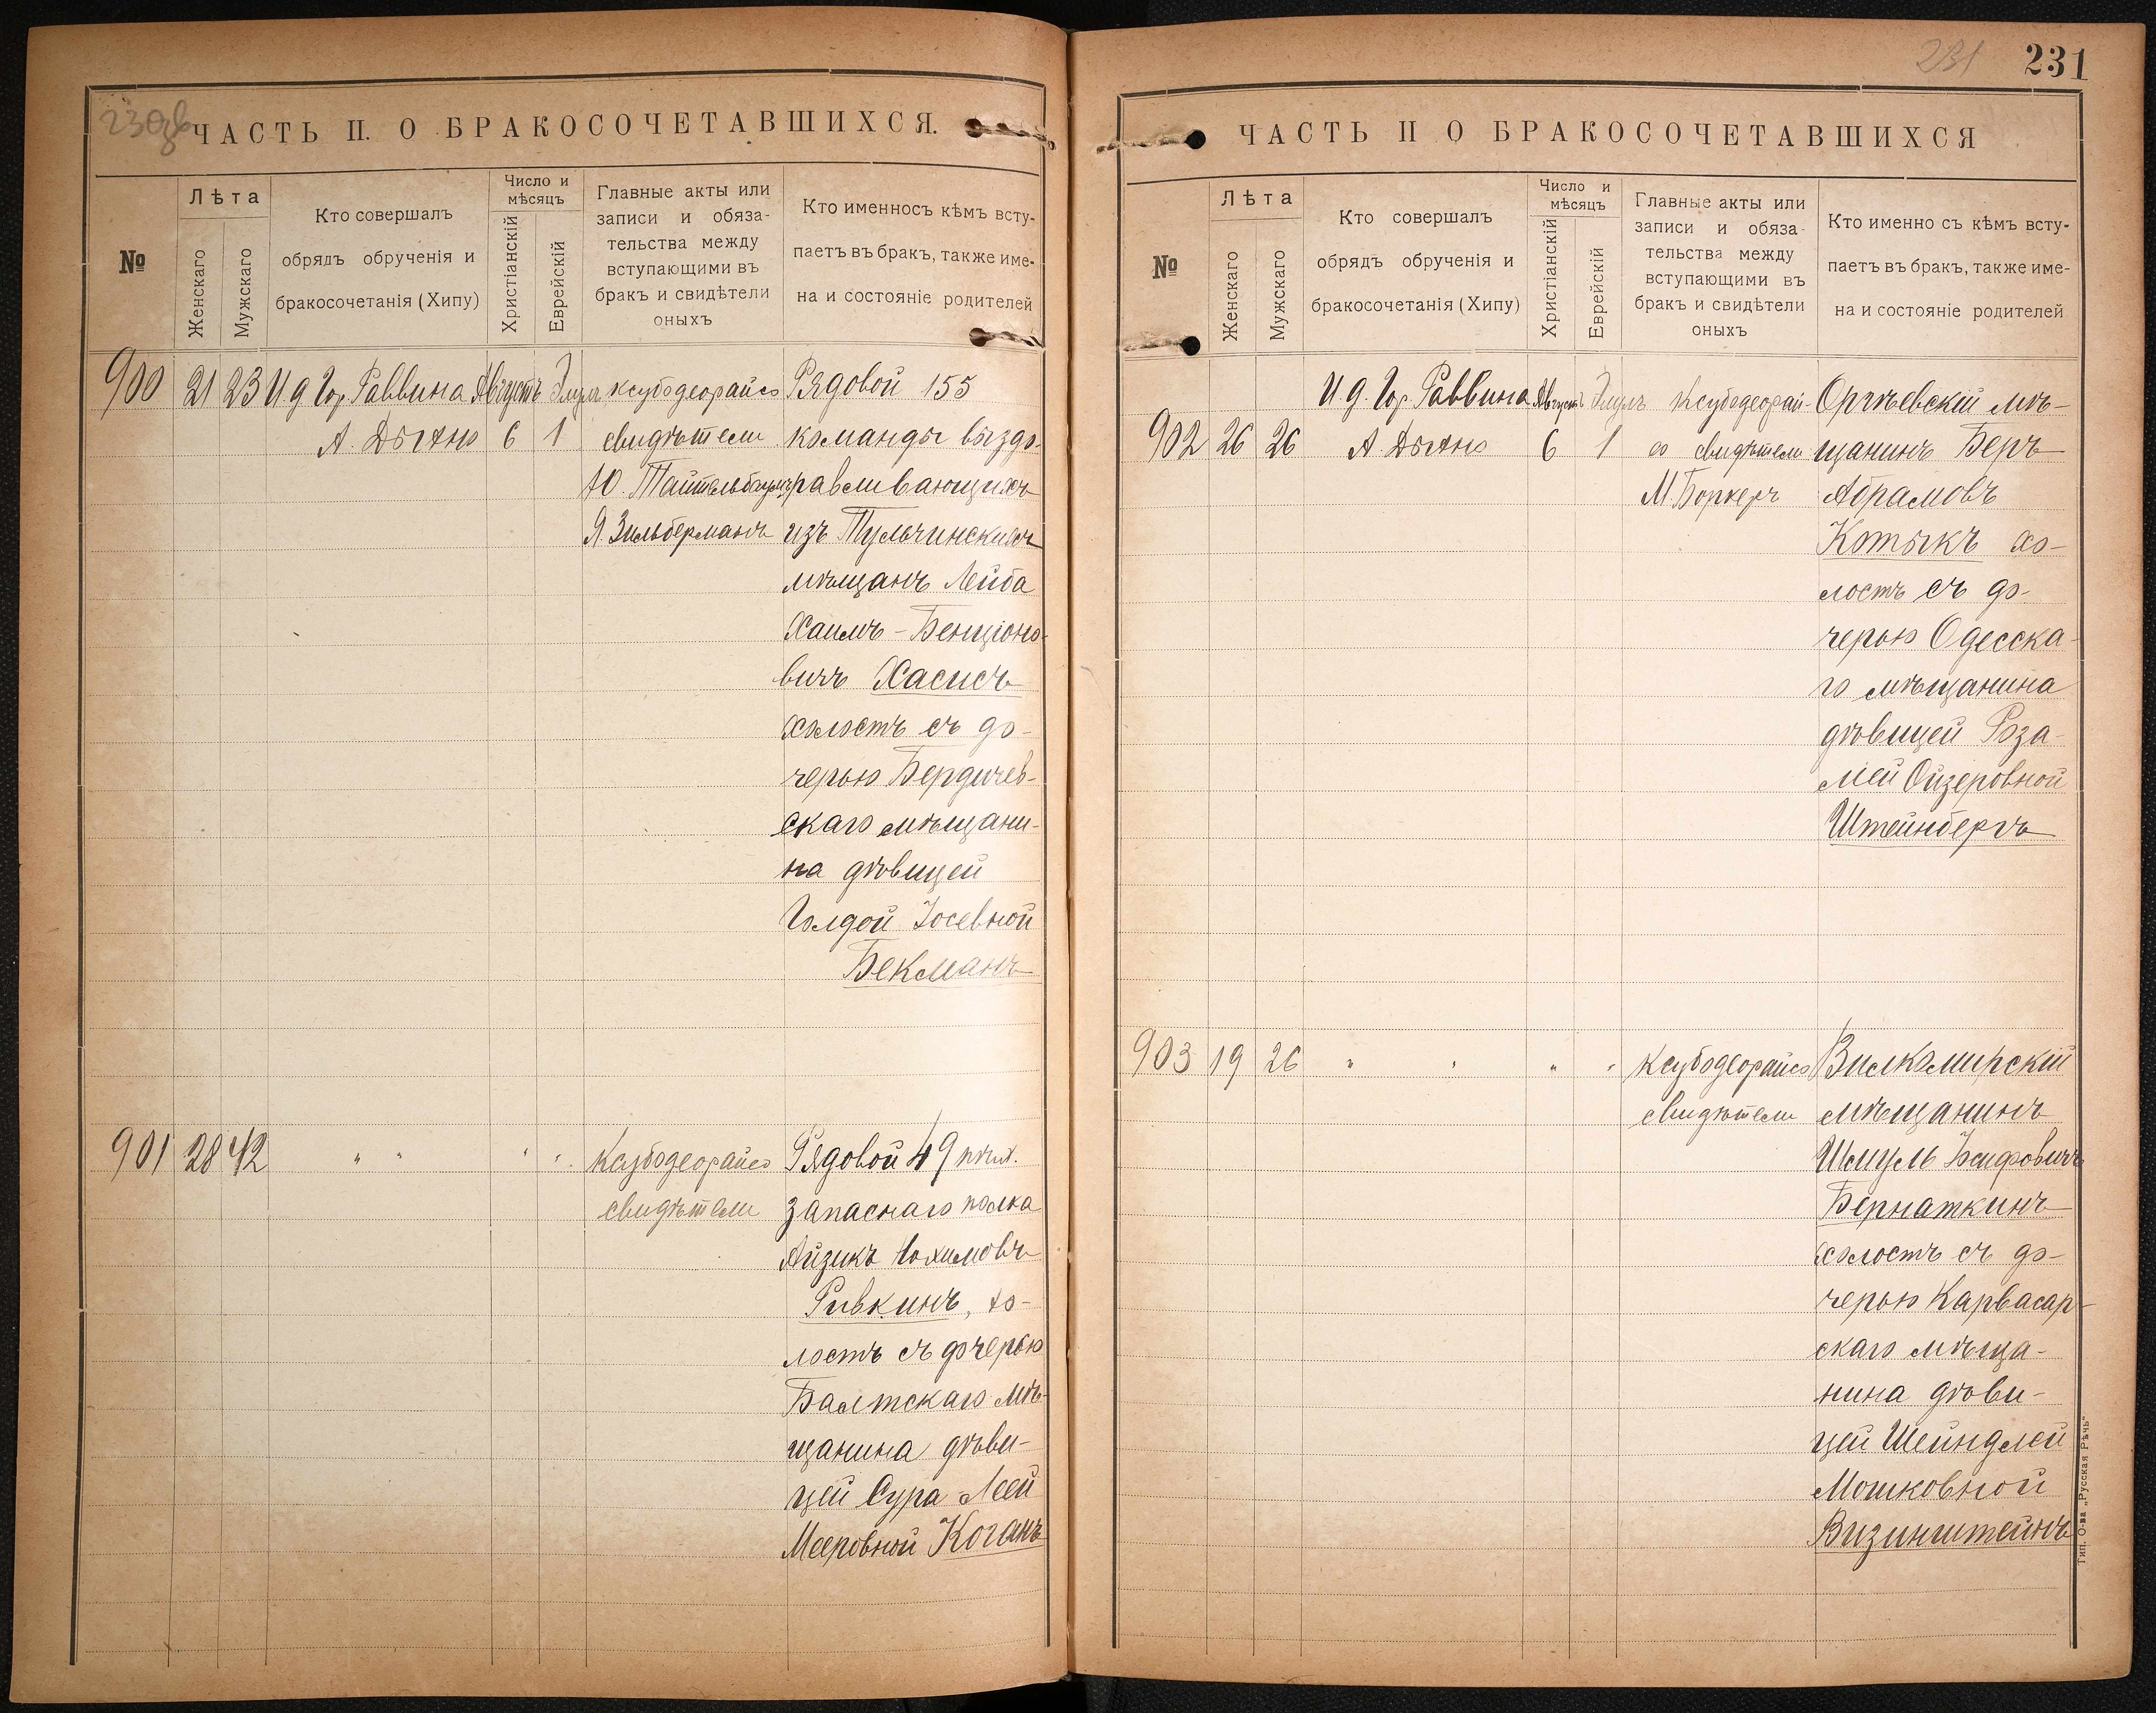 230об
ЧАСТЬ II. О БРАКОСОЧЕТАВШИХСЯ.
№
Лѣта
Женскаго
Мужскаго
Кто совершалъ
обрядъ обрученія и
бракосочетанія (Хипу)
Число и
мѣсяцъ
Христіанскій
Еврейскій
Главные акты или
записи и обяза-
тельства между
вступающими въ
бракъ и свидѣтели
оныхъ
Кто именносъ кѣмъ всту-
паетъ въ бракъ, также име-
на и состояніе родителей
900 21 23 И.д. Гор. Раввина Августъ Элулъ ксубодеорайсо Рядовой 155
А. Дыхно 6 1 свидѣтели команды выздо-
Ю. Тайтельбаумъ равливающихъ
Я. Зильберманъ изъ Тульчинскихъ
мѣщанъ Лейба
Хаимъ-Бенціоно-
вичъ Хасисъ
холостъ съ до-
черью Бердичев-
скаго мѣщани-
на дѣвицей
Голдой Іосевной
Бекманъ
901 28 42 " " " " Ксубодеорайсо Рядовой 49 пѣх.
свидѣтели запаснаго полка
Айзикъ
Ривкинъ, хо-
лостъ съ дочерью
Балтскаго мѣ-
щанина дѣви-
цей Сура Леей
Мееровной Коганъ
231
231
ЧАСТЬ II О БРАКОСОЧЕТАВШИХСЯ
№
Лѣта
Женскаго
Мужскаго
Кто совершалъ
обрядъ обрученія и
бракосочетанія (Хипу)
Число и
мѣсяцъ
Христіанскій
Еврейскій
Главные акты или
записи и обяза-
тельства между
вступающими въ
бракъ и свидѣтели
оныхъ
Кто именно съ кѣмъ всту-
паетъ въ бракъ, также име-
на и состояніе родителей
И.д. Гор. Раввина Августъ Элулъ Ксубодеорай- Оргѣевскій мѣ-
902 26 26 А. Дыхно 6 1 со свидѣтели щанинъ Беръ
М. Боркеръ Абрамовъ
Котыкъ хо-
лостъ съ до-
черью Одесска-
го мѣщанина
дѣвицей Роза-
лiей Ойзеровной
Штейнбергъ
903 19 26 " " " " Ксубодеорайсо Вилкомирскій
свидѣтели мѣщанинъ
Шмуль
Бернаткинъ
холостъ съ до-
черью Карвасар-
скаго мѣща-
нина дѣви-
цей Шейндлей
Мошковной
Визинштейнъ
Тип. О-ва „Русская Рѣчь"